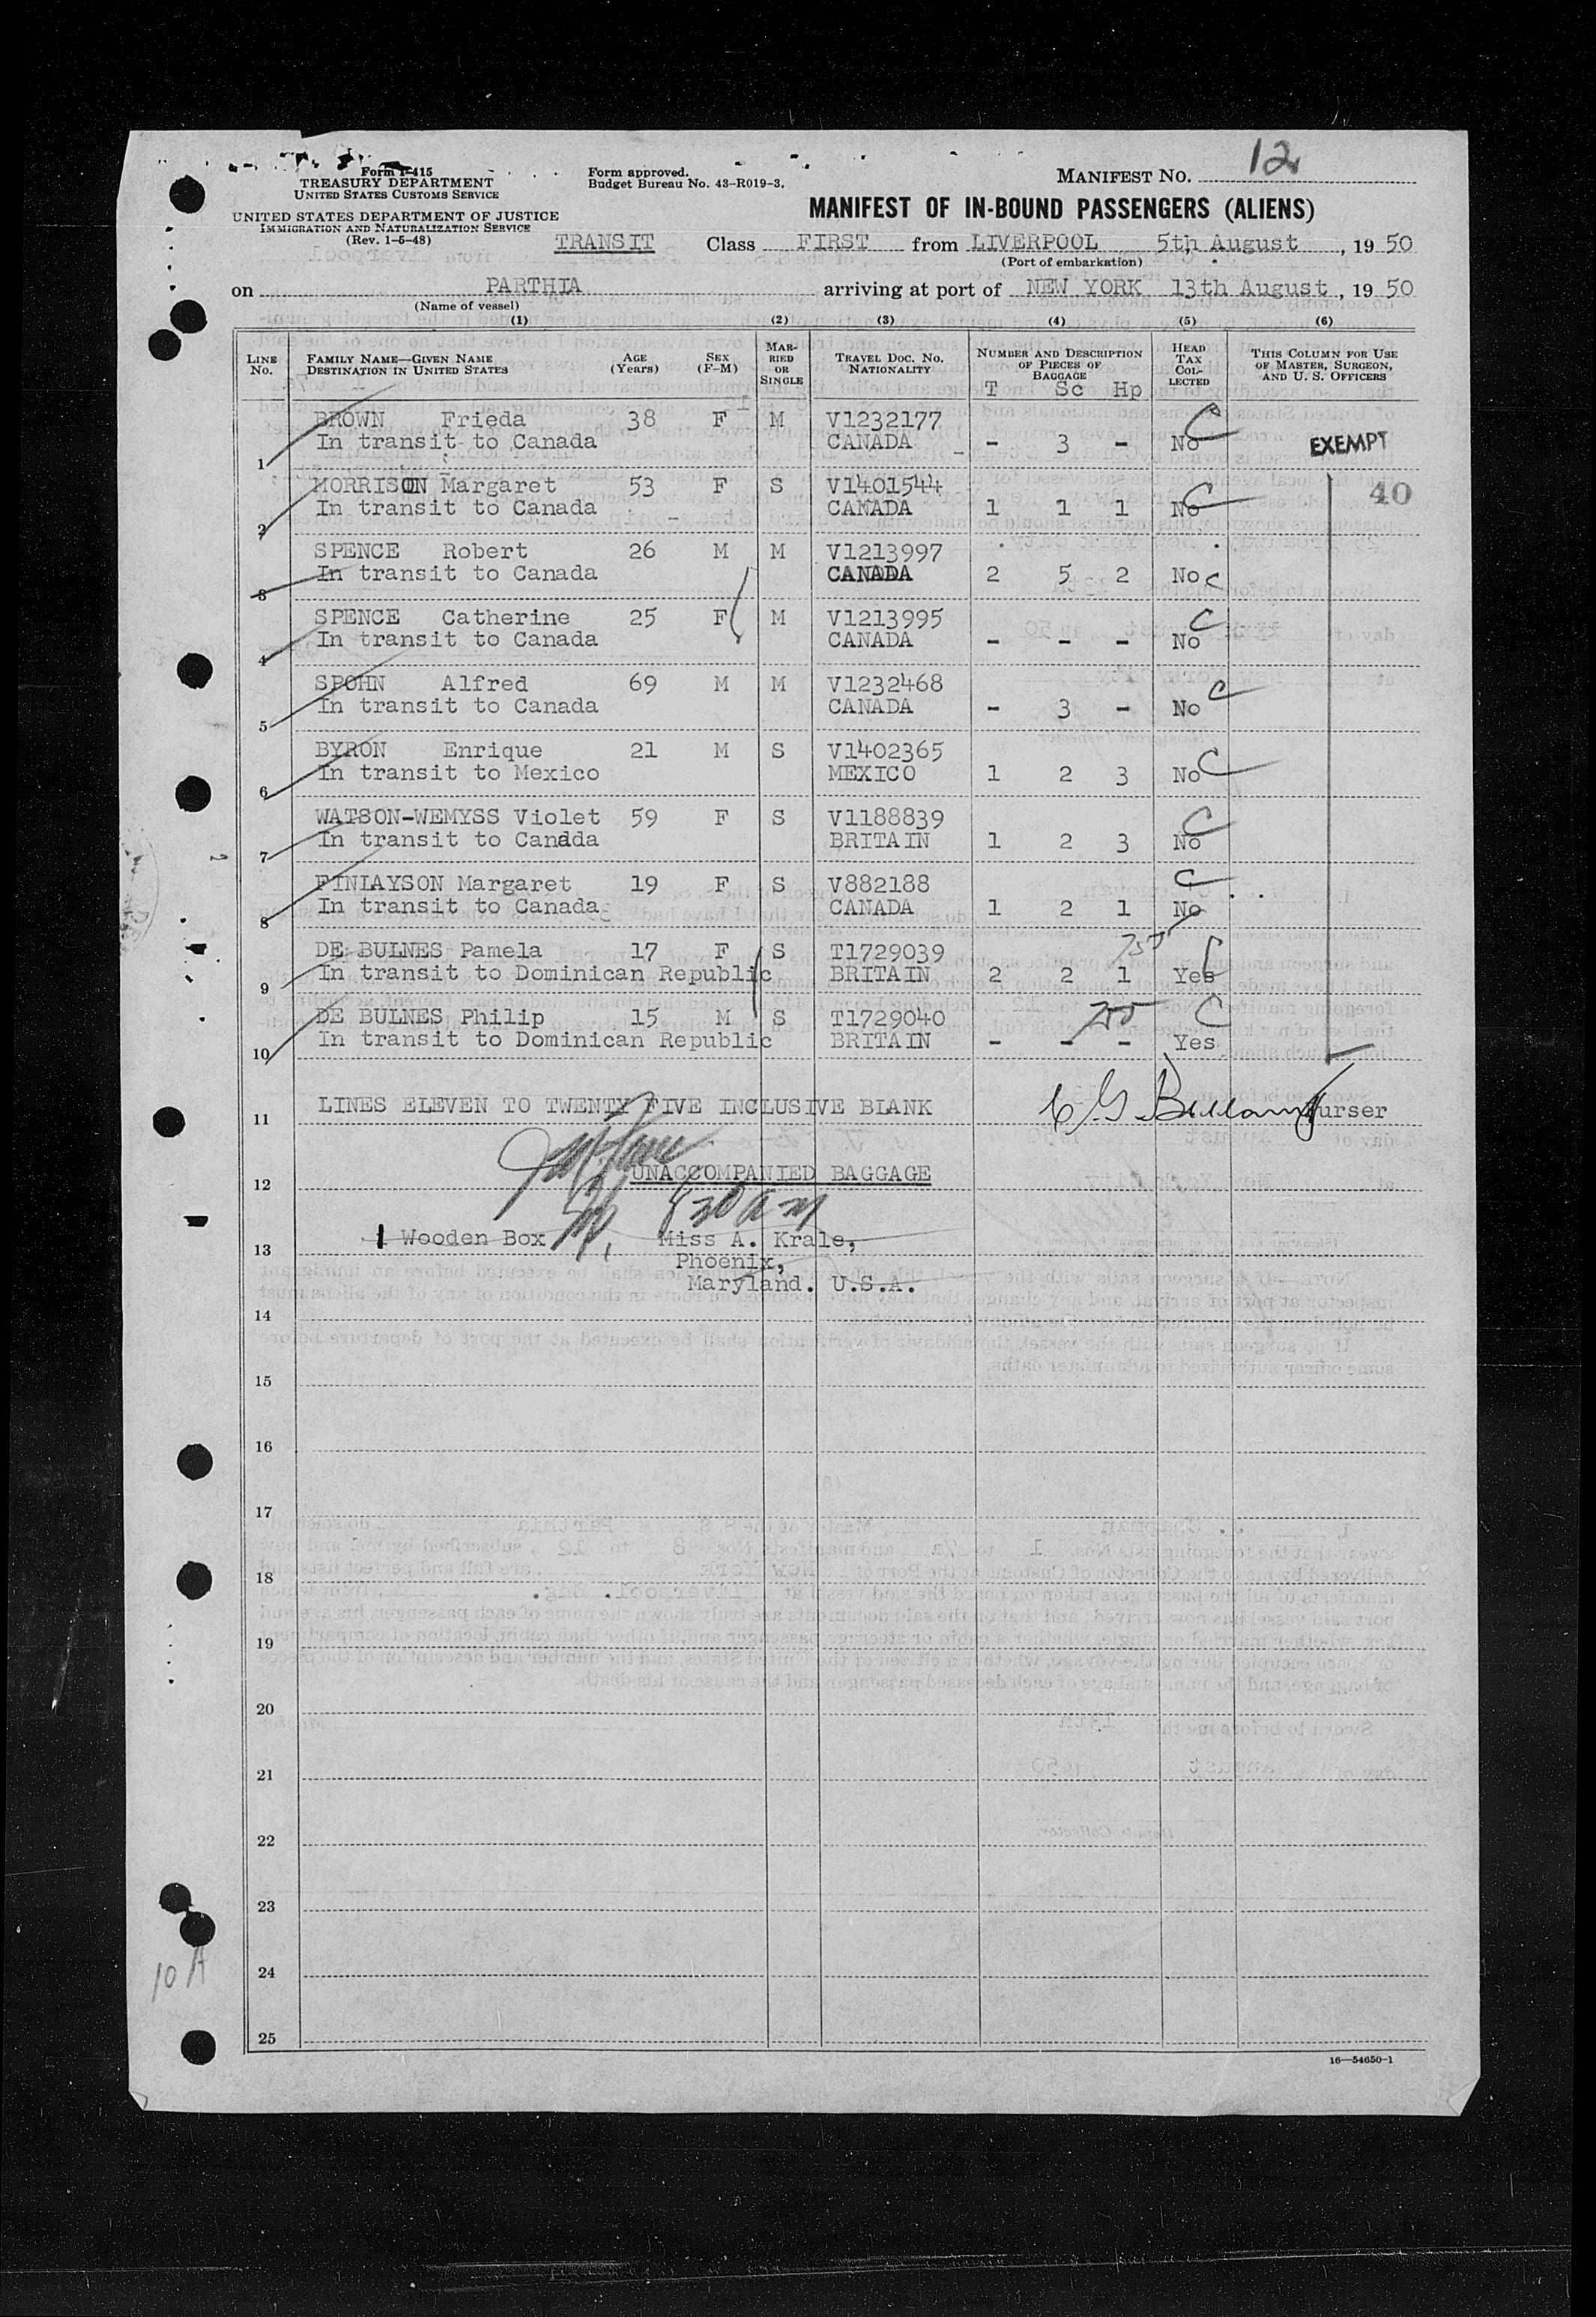 Form I-415
TREASURY DEPARTMENT
UNITED STATES CUSTOMS SERVICE
UNITED STATES DEPARTMENT OF JUSTICE
IMMIGRATION AND NATURALIZATION SERVICE
(Rev. 1-5-48)
Form approved.
Budget Bureau No. 43-R019-3.
MANIFEST NO. 12
MANIFEST OF IN-BOUND PASSENGERS (ALIENS)
TRANSIT Class FIRST from LIVERPOOL 5th August, 19 50
(Port of embarkation)
on PARTHIA arriving at port of NEW YORK 13th August, 19 50
(Name of vessel)
(1) (2) (3) (4) (5) (6)
LINE No.
FAMILY NAME—GIVEN NAME
DESTINATION IN UNITED STATES
AGE (Years)
SEX (F-M)
MARRIED OR SINGLE
TRAVEL DOC. NO. NATIONALITY
NUMBER AND DESCRIPTION OF PIECES OF BAGGAGE
T Sc Hp
HEAD TAX COLLECTED
THIS COLUMN FOR USE OF MASTER, SURGEON, AND U. S. OFFICERS
BROWN Frieda 38 F M V1232177 C
1 In transit to Canada CANADA - 3 - No EXEMPT
MORRISON Margaret 53 F S V1401544 C 40
2 In transit to Canada CANADA 1 1 1 No
SPENCE Robert 26 M M V1213997
3 In transit to Canada CANADA 2 5 2 No C
SPENCE Catherine 25 F M V1213995 C
4 In transit to Canada CANADA - - - No
SPOHN Alfred 69 M M V1232468 C
5 In transit to Canada CANADA - 3 - No
BYRON Enrique 21 M S V1402365 C
6 In transit to Mexico MEXICO 1 2 3 No
WATSON-WEMYSS Violet 59 F S V1188839 C
7 In transit to Canada BRITAIN 1 2 3 No
FINLAYSON Margaret 19 F S V882188 C
8 In transit to Canada CANADA 1 2 1 No
DE BULNES Pamela 17 F S T1729039
9 In transit to Dominican Republic BRITAIN 2 2 1 Yes
DE BULNES Philip 15 M S T1729040 C
10 In transit to Dominican Republic BRITAIN - - - Yes
11 LINES ELEVEN TO TWENTY FIVE INCLUSIVE BLANK Purser
12 UNACCOMPANIED BAGGAGE
13 1 Wooden Box Miss A. Krale,
Phoenix,
Maryland. U.S.A.
14
15
16
17
18
19
20
21
22
23
24
25
10 A
16—54650-1